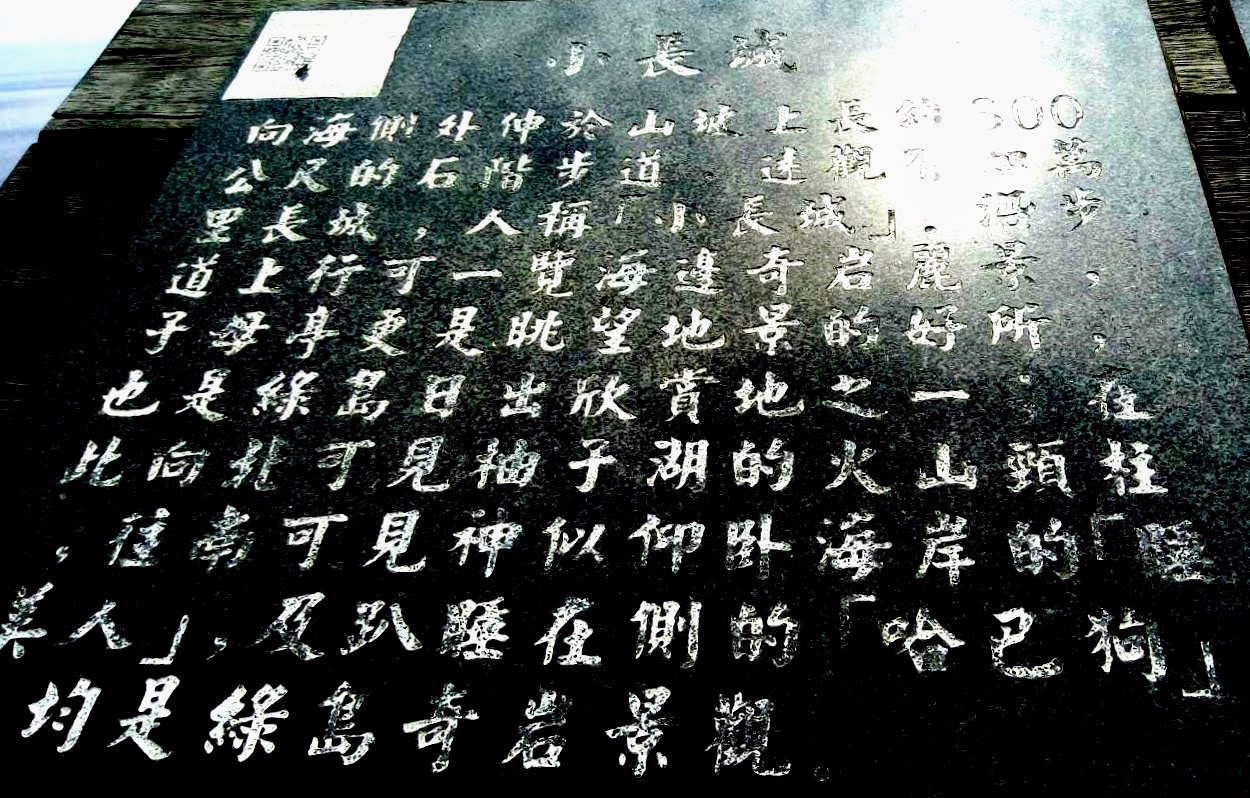 小長城
向海側外伸於山坡上長約300
公尺的石階步道，遠觀有如萬
里長城，人稱「小長城」，步
道上行可一覽海邊奇岩麗景，
子母亭更是眺望地景的好所，
也是綠島日出欣賞地之一，在
此向北可見柚子湖的火山頸柱
，往南可見神似仰臥海岸的「睡
美人」，及趴睡在側的「哈巴狗」
均是綠島奇岩景觀。